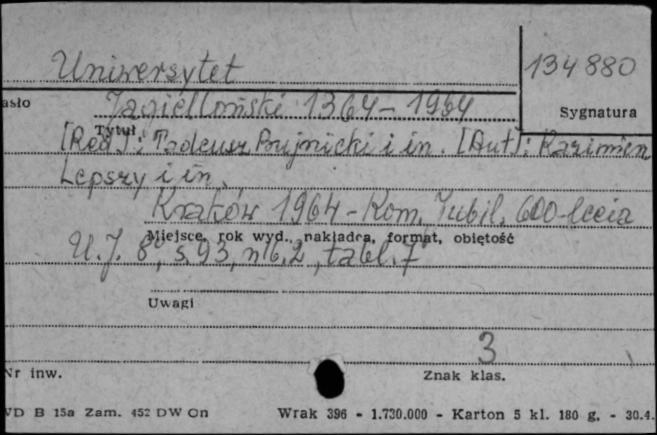 Uniwersytet
134 880
asło
Jagielloński 1364-1964
Sygnatura
Tytuł
[Red.]: Tadeusz Bujnicki i in. [Aut]: Kazimierz
Lepszy i in.
Kraków 1964 - Kom. Jubil. 600-lecia
Miejsce, rok wyd., nakładca, format, objętość
U.J. 8°, s. 93, nlb. 2, tabl. 7
Uwagi
3
Nr inw.
Znak klas.
VD B 15a Zam. 452 DW On Wrak 396 - 1.730.000 - Karton 5 kl. 180 g. - 30.4.